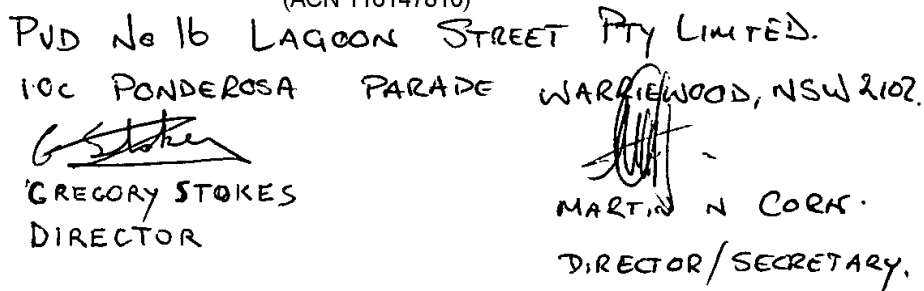 (ACN 116147816)
PVD No 16 LAGOON STREET PTY LIMITED.
10c PONDEROSA PARADE WARRIEWOOD, NSW 2102.
G Stokes
GREGORY STOKES
DIRECTOR
MARTIN N CORK.
DIRECTOR/SECRETARY.